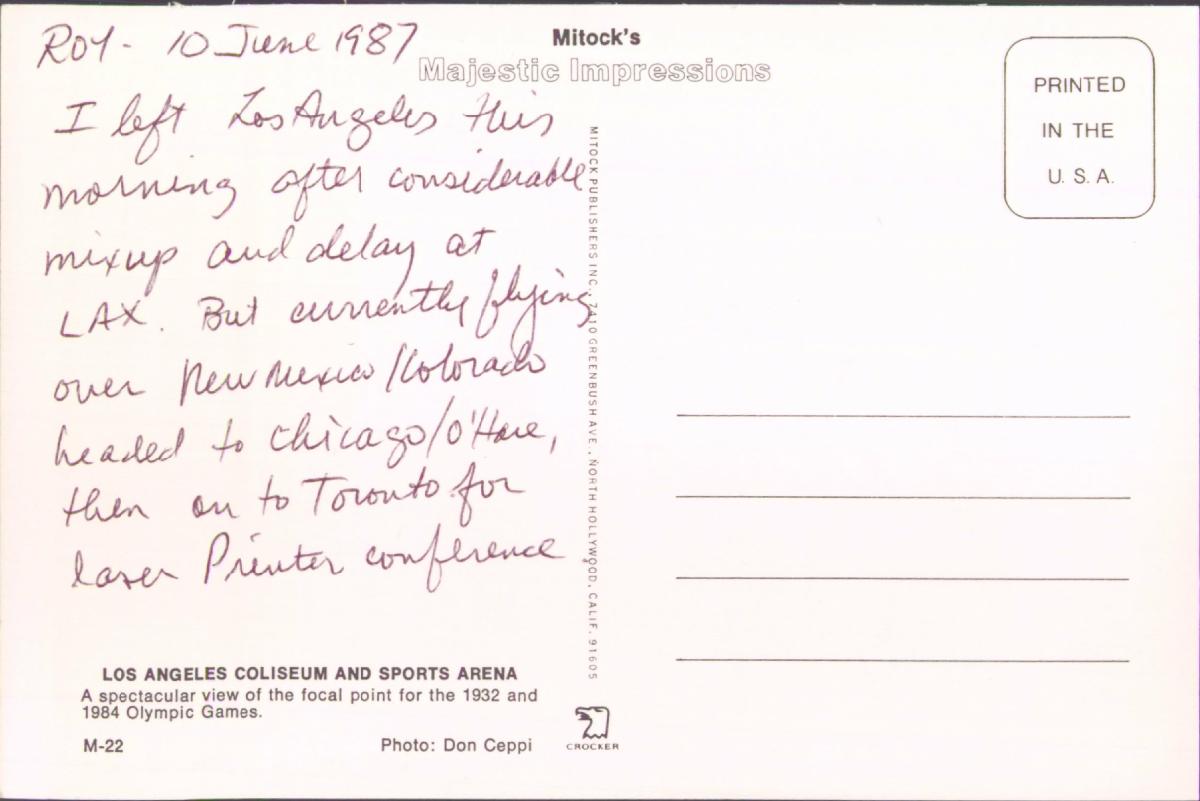 ROY - 10 June 1987
I left Los Angeles this
morning after considerable
mixup and delay at
LAX. But currently flying
over New Mexico/Colorado
headed to Chicago/O'Hare,
then on to Toronto for
laser Printer conference
LOS ANGELES COLISEUM AND SPORTS ARENA
A spectacular view of the focal point for the 1932 and
1984 Olympic Games.
M-22 Photo: Don Ceppi
Mitock's
Majestic Impressions
MITOCK PUBLISHERS INC., 7410 GREENBUSH AVE., NORTH HOLLYWOOD, CALIF. 91605
CROCKER
PRINTED
IN THE
U. S. A.